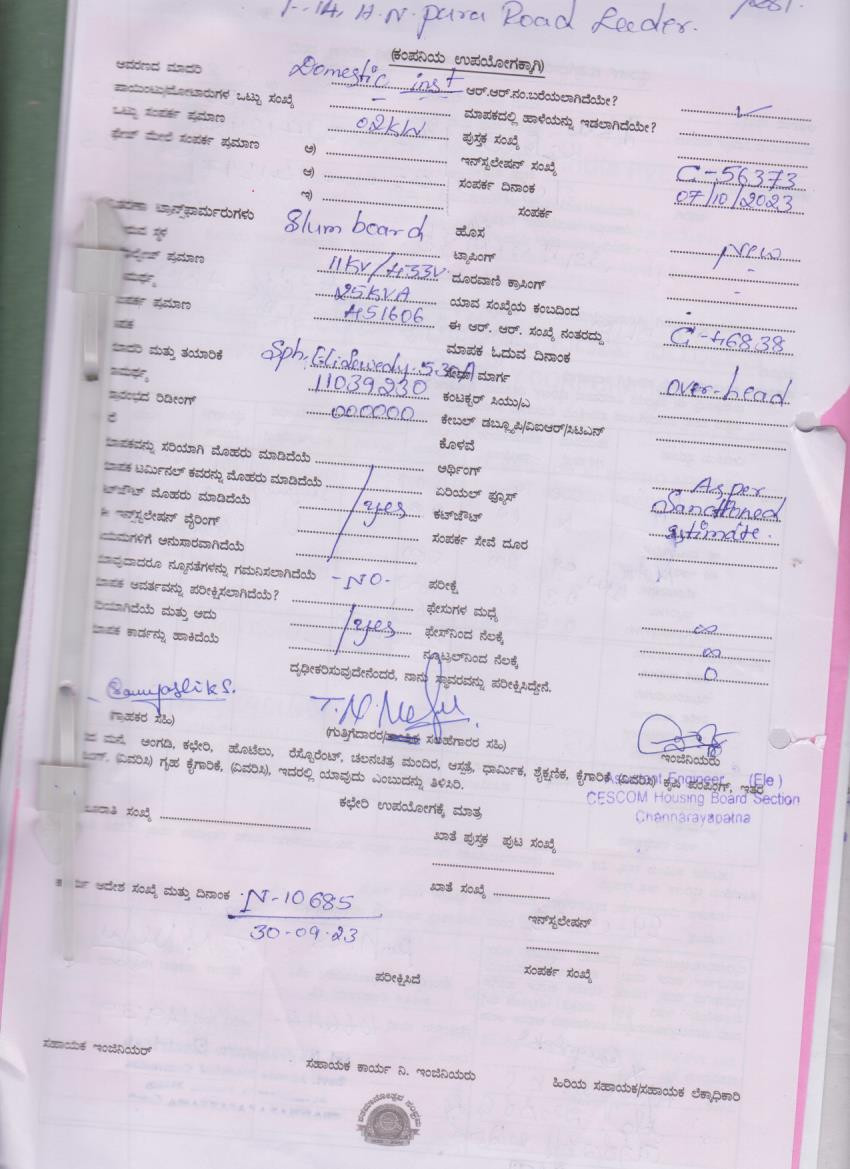 F-14, H.N. pura Road Leeder.
(ಕಂಪನಿಯ ಉಪಯೋಗಕ್ಕಾಗಿ)
ಆವರಣದ ಮಾದರಿ Domestic inst ಆರ್.ಆರ್.ನಂ.ಬರೆಯಲಾಗಿದೆಯೇ?
ಪಾಯಿಂಟು/ಮೋಟಾರುಗಳ ಒಟ್ಟು ಸಂಖ್ಯೆ - ಮಾಪಕದಲ್ಲಿ ಹಾಳೆಯನ್ನು ಇಡಲಾಗಿದೆಯೇ?
ಒಟ್ಟು ಸಂಪರ್ಕ ಪ್ರಮಾಣ 02KW ಪುಸ್ತಕ ಸಂಖ್ಯೆ
ಫೇಜ್ ಮೇಲೆ ಸಂಪರ್ಕ ಪ್ರಮಾಣ ಅ) ಇನ್‌ಸ್ಟಲೇಷನ್ ಸಂಖ್ಯೆ C-56373
ಆ) ಸಂಪರ್ಕ ದಿನಾಂಕ 07/10/2023
ಇ) ಸಂಪರ್ಕ
ಟ್ರಾನ್ಸ್‌ಫಾರ್ಮರುಗಳು Slum board ಹೊಸ New
ಸ್ಥಳ ಟ್ಯಾಪಿಂಗ್ -
ಪ್ರಮಾಣ 11KV/433V ದೂರವಾಣಿ ಕ್ರಾಸಿಂಗ್ -
25KVA ಯಾವ ಸಂಖ್ಯೆಯ ಕಂಬದಿಂದ
ಪ್ರಮಾಣ 451606 ಈ ಆರ್. ಆರ್. ಸಂಖ್ಯೆ ನಂತರದ್ದು C-46838
ಮಾಪಕ ಓದುವ ದಿನಾಂಕ
ಮತ್ತು ತಯಾರಿಕೆ 5-30A ಮಾರ್ಗ over-head
11039230 ಕಂಟಕ್ಟರ್ ಸಿಯು/ಎ
ರೀಡಿಂಗ್ 000000 ಕೇಬಲ್ ಡಬ್ಲ್ಯೂಪಿ/ವಿಐಆರ್/ಸಿಟಿಎನ್
ಕೊಳವೆ
ಸರಿಯಾಗಿ ಮೊಹರು ಮಾಡಿದೆಯೆ ಅರ್ಥಿಂಗ್
ಟರ್ಮಿನಲ್ ಕವರನ್ನು ಮೊಹರು ಮಾಡಿದೆಯೆ ಏರಿಯಲ್ ಫ್ಯೂಸ್ As per
ಮೊಹರು ಮಾಡಿದೆಯೆ yes ಕಟ್‌ಔಟ್ Sanctioned
ಇನ್‌ಸ್ಟಲೇಷನ್ ವೈರಿಂಗ್ ಸಂಪರ್ಕ ಸೇವೆ ದೂರ estimate.
ಅನುಸಾರವಾಗಿದೆಯೆ
ನ್ಯೂನತೆಗಳನ್ನು ಗಮನಿಸಲಾಗಿದೆಯೆ -NO- ಪರೀಕ್ಷೆ
ಆವರ್ತವನ್ನು ಪರೀಕ್ಷಿಸಲಾಗಿದೆಯೆ? ಫೇಸುಗಳ ಮಧ್ಯೆ ∞
ಮತ್ತು ಅದು yes ಫೇಸ್‌ನಿಂದ ನೆಲಕ್ಕೆ ∞
ಕಾರ್ಡನ್ನು ಹಾಕಿದೆಯೆ ನ್ಯೂಟ್ರಲ್‌ನಿಂದ ನೆಲಕ್ಕೆ 0
ದೃಢೀಕರಿಸುವುದೇನೆಂದರೆ, ನಾನು ಸ್ಥಾವರವನ್ನು ಪರೀಕ್ಷಿಸಿದ್ದೇನೆ.
(ಗ್ರಾಹಕರ ಸಹಿ) ಸಲಹೆಗಾರರ ಸಹಿ) ಇಂಜಿನಿಯರು
ಮನೆ, ಅಂಗಡಿ, ಕಛೇರಿ, ಹೊಟೆಲು, ರೆಸ್ಟೊರೆಂಟ್, ಚಲನಚಿತ್ರ ಮಂದಿರ, ಆಸ್ಪತ್ರೆ, ಧಾರ್ಮಿಕ, ಶೈಕ್ಷಣಿಕ, ಕೈಗಾರಿಕೆ (ವಿವರಿಸಿ) ಕೃಷಿ ಪಂಪಿಂಗ್, ಇತರ
(ವಿವರಿಸಿ) ಗೃಹ ಕೈಗಾರಿಕೆ, (ವಿವರಿಸಿ), ಇದರಲ್ಲಿ ಯಾವುದು ಎಂಬುದನ್ನು ತಿಳಿಸಿರಿ.
Assistant Engineer (Ele)
CESCOM Housing Board Section
Channarayapatna
ಕಛೇರಿ ಉಪಯೋಗಕ್ಕೆ ಮಾತ್ರ
ಸಂಖ್ಯೆ ಖಾತೆ ಪುಸ್ತಕ ಪುಟ ಸಂಖ್ಯೆ
ಆದೇಶ ಸಂಖ್ಯೆ ಮತ್ತು ದಿನಾಂಕ N-10685 ಖಾತೆ ಸಂಖ್ಯೆ
30-09-23 ಇನ್‌ಸ್ಟಲೇಷನ್
ಪರೀಕ್ಷಿಸಿದೆ ಸಂಪರ್ಕ ಸಂಖ್ಯೆ
ಸಹಾಯಕ ಇಂಜಿನಿಯರ್ ಸಹಾಯಕ ಕಾರ್ಯ ನಿ. ಇಂಜಿನಿಯರು ಹಿರಿಯ ಸಹಾಯಕ/ಸಹಾಯಕ ಲೆಕ್ಕಾಧಿಕಾರಿ